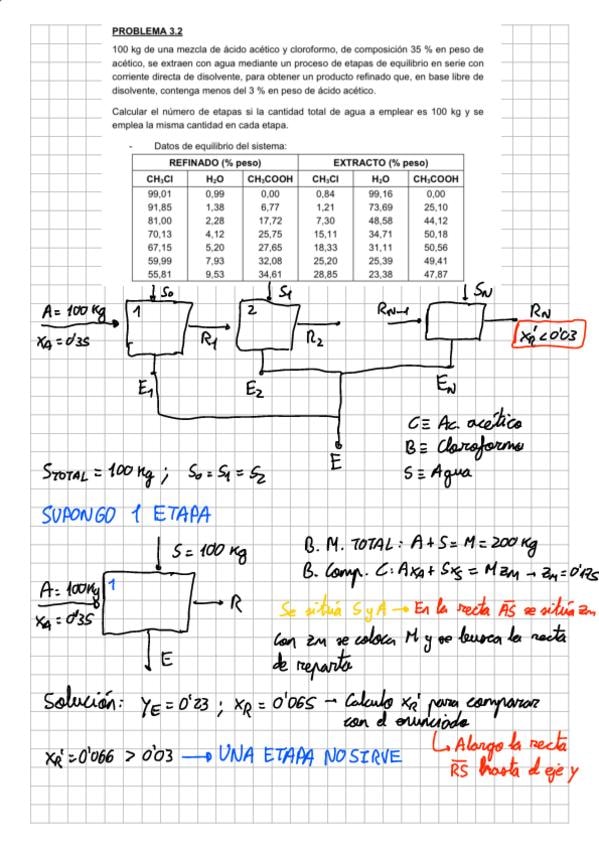 PROBLEMA 3.2
100 kg de una mezcla de ácido acético y cloroformo, de composición 35 % en peso de
acético, se extraen con agua mediante un proceso de etapas de equilibrio en serie con
corriente directa de disolvente, para obtener un producto refinado que, en base libre de
disolvente, contenga menos del 3 % en peso de ácido acético.
Calcular el número de etapas si la cantidad total de agua a emplear es 100 kg y se
emplea la misma cantidad en cada etapa.
- Datos de equilibrio del sistema:
REFINADO (% peso) EXTRACTO (% peso)
CH₃Cl H₂O CH₃COOH CH₃Cl H₂O CH₃COOH
99,01 0,99 0,00 0,84 99,16 0,00
91,85 1,38 6,77 1,21 73,69 25,10
81,00 2,28 17,72 7,30 48,58 44,12
70,13 4,12 25,75 15,11 34,71 50,18
67,15 5,20 27,65 18,33 31,11 50,56
59,99 7,93 32,08 25,20 25,39 49,41
55,81 9,53 34,61 28,85 23,38 47,87
S₀ S₁ SN
A = 100 kg 1 2 RN-1 RN
XA = 0'35 R₁ R₂ XR' < 0'03
E₁ E₂ EN
C ≡ Ac. acético
B ≡ Cloroformo
E
STOTAL = 100 kg ; S₀ = S₁ = S₂ S ≡ Agua
SUPONGO 1 ETAPA
S = 100 kg B. M. TOTAL : A + S = M = 200 kg
A = 100 kg 1 B. Comp. C : AXA + SXS = M ZM → ZM = 0'175
XA = 0'35 R Se sitúa S y A → En la recta AS se sitúa ZM
Con ZM se coloca M y se busca la recta
E de reparto
Solución: YE = 0'23 ; XR = 0'065 → Calculo XR' para comparar
con el enunciado
↳ Alargo la recta
XR' = 0'066 > 0'03 → UNA ETAPA NO SIRVE
RS hasta el eje y